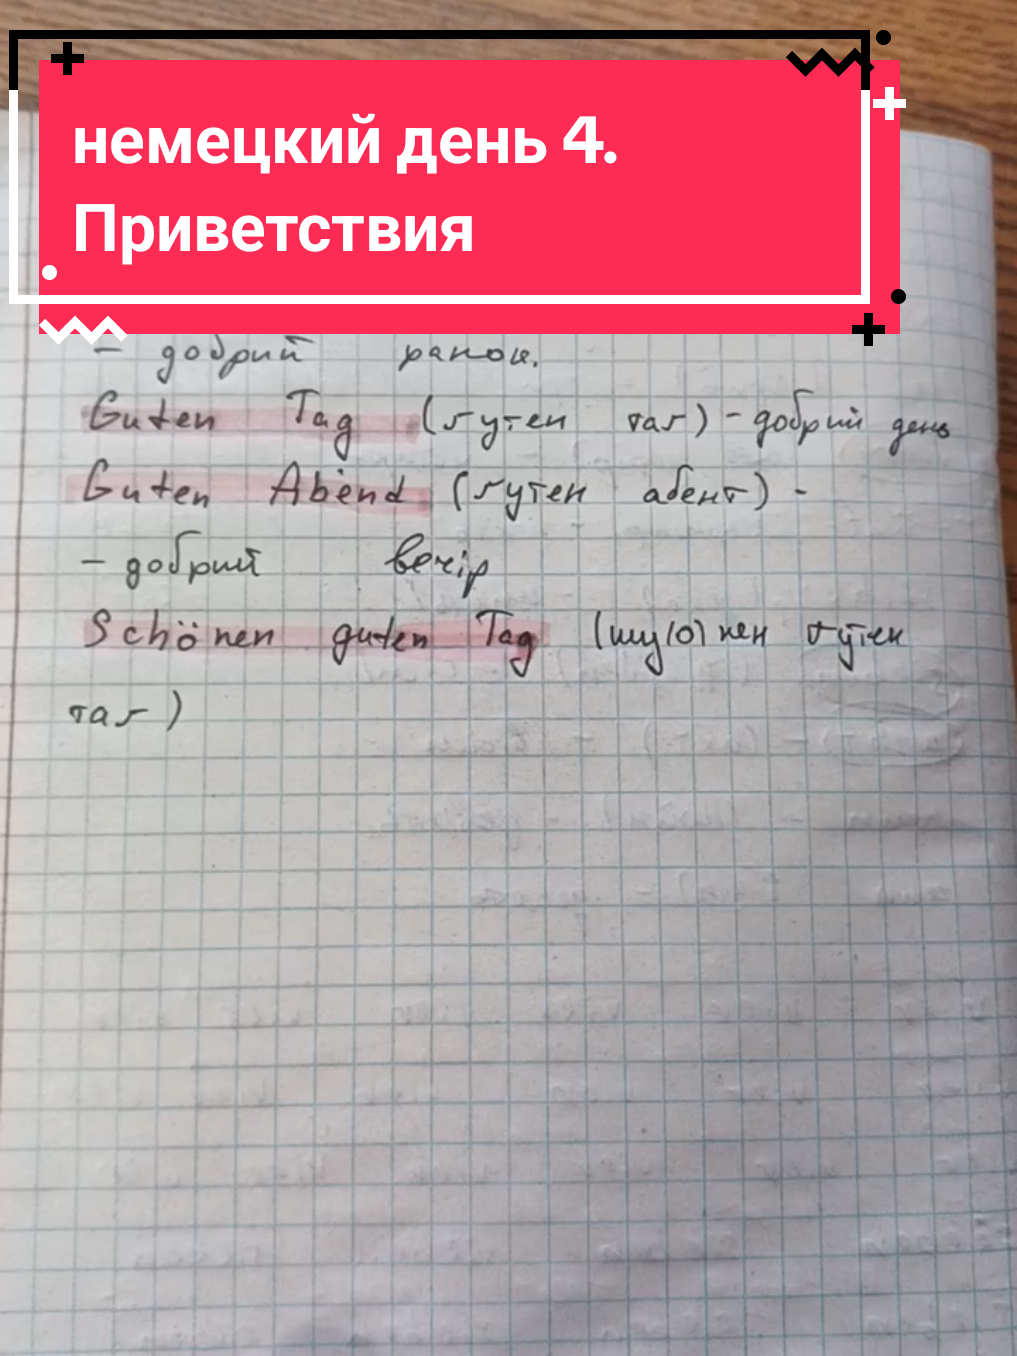 немецкий день 4.
Приветствия
- добрий ранок.
Guten Tag (гутен таг) - добрий день
Guten Abend (гутен абент) -
- добрий вечір
Schönen guten Tag (шу(о)нен гутен
таг)